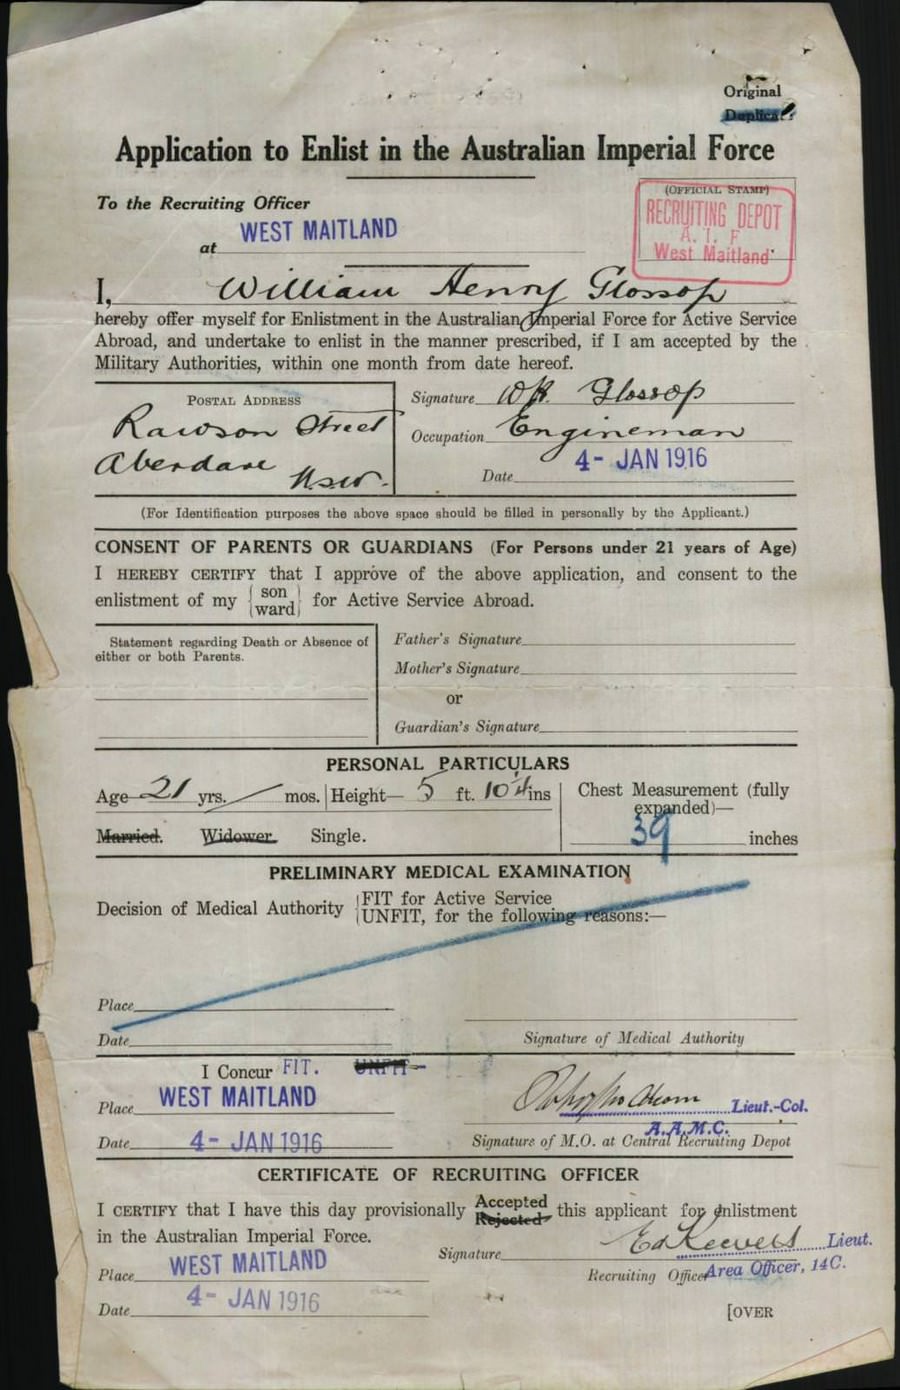 Original
Duplicate
Application to Enlist in the Australian Imperial Force
To the Recruiting Officer
at WEST MAITLAND
(OFFICIAL STAMP)
RECRUITING DEPOT
A. I. F
West Maitland
I, William Henry Glossop
hereby offer myself for Enlistment in the Australian Imperial Force for Active Service
Abroad, and undertake to enlist in the manner prescribed, if I am accepted by the
Military Authorities, within one month from date hereof.
POSTAL ADDRESS
Rawson Street
Aberdare
N.S.W.
Signature W.H. Glossop
Occupation Engineman
Date 4- JAN 1916
(For Identification purposes the above space should be filled in personally by the Applicant.)
CONSENT OF PARENTS OR GUARDIANS (For Persons under 21 years of Age)
I HEREBY CERTIFY that I approve of the above application, and consent to the
enlistment of my {son ward} for Active Service Abroad.
Statement regarding Death or Absence of
either or both Parents.
Father's Signature
Mother's Signature
or
Guardian's Signature
PERSONAL PARTICULARS
Age 21 yrs. / mos. Height— 5 ft. 10 ins
Chest Measurement (fully
expanded)—
39 inches
Married. Widower. Single.
PRELIMINARY MEDICAL EXAMINATION
Decision of Medical Authority {FIT for Active Service
{UNFIT, for the following reasons:—
Place
Date
Signature of Medical Authority
I Concur FIT. UNFIT
Place WEST MAITLAND
Lieut.-Col.
A.A.M.C.
Date 4- JAN 1916
Signature of M.O. at Central Recruiting Depot
CERTIFICATE OF RECRUITING OFFICER
I CERTIFY that I have this day provisionally Accepted Rejected this applicant for enlistment
in the Australian Imperial Force.
Signature Lieut.
Place WEST MAITLAND
Recruiting Officer Area Officer, 14C.
Date 4- JAN 1916
[OVER